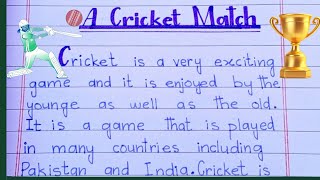 A Cricket Match
Cricket is a very exciting
game and it is enjoyed by the
younge as well as the old.
It is a game that is played
in many countries including
Pakistan and India.Cricket is